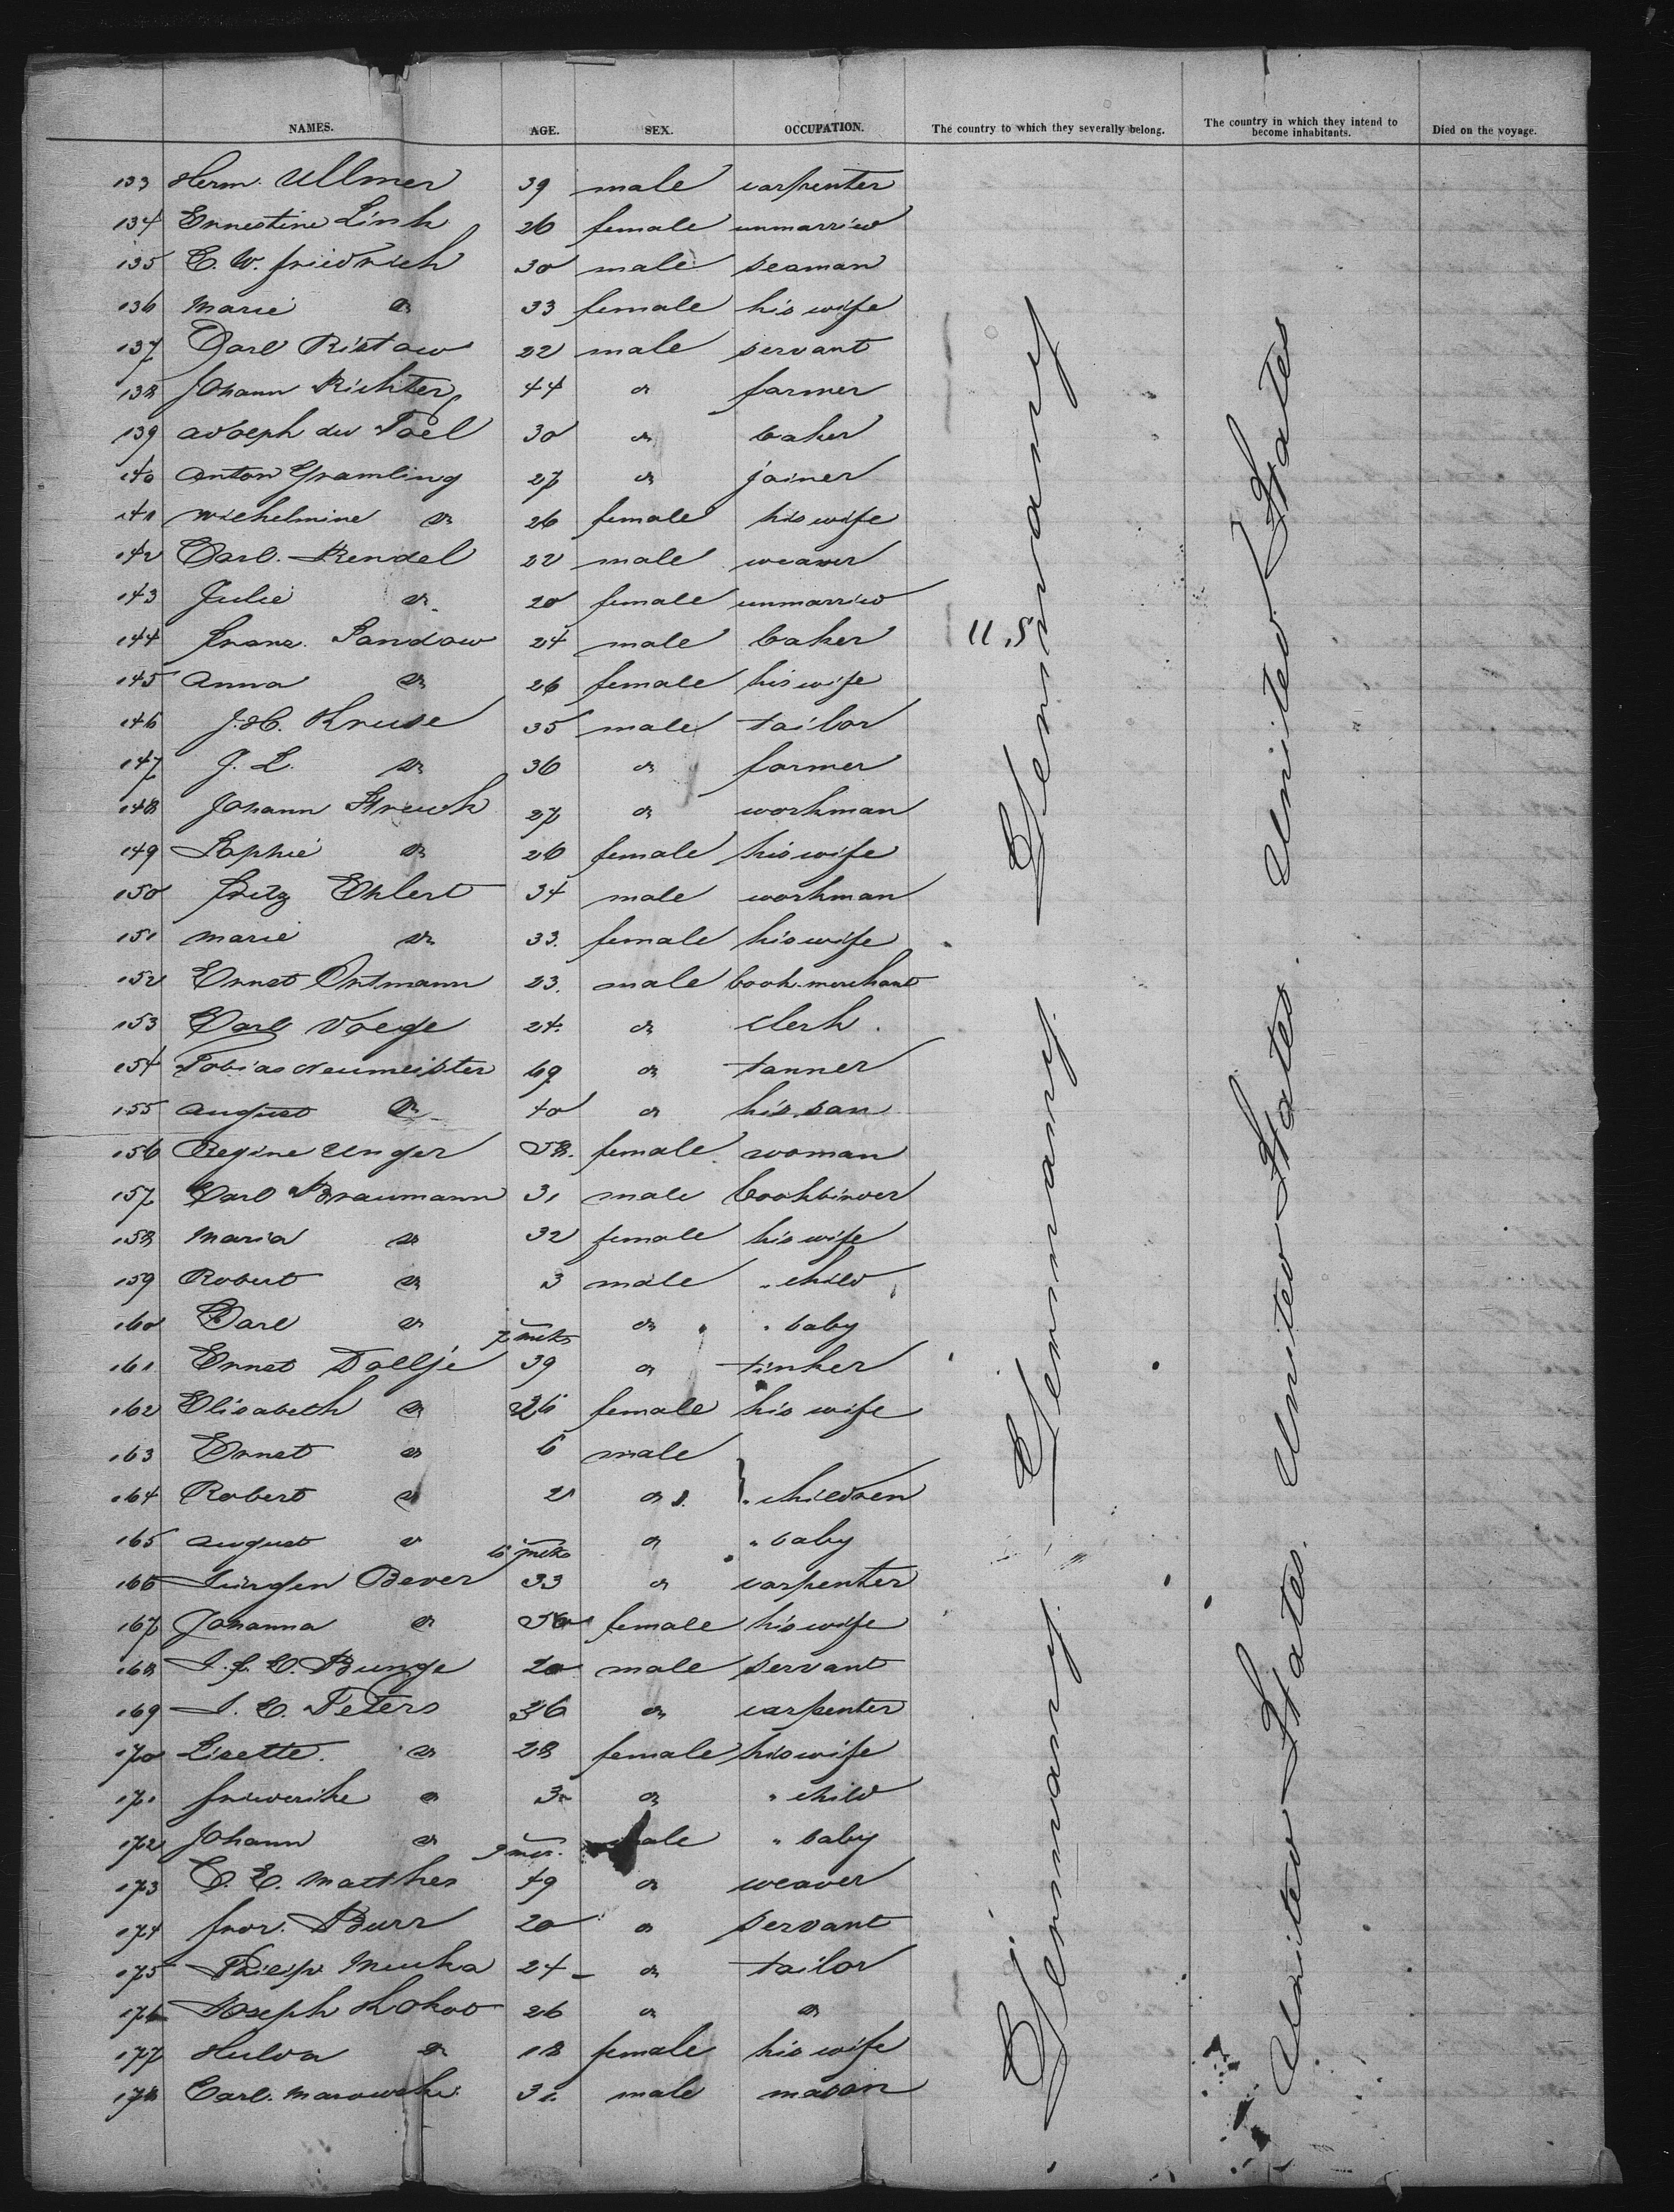 NAMES. AGE. SEX. OCCUPATION. The country to which they severally belong. The country in which they intend to become inhabitants. Died on the voyage.
133 Herm. Ullmer 39 male carpenter
134 Ernestine Link 26 female unmarried
135 C. W. Friedrich 30 male seaman
136 Marie do 33 female his wife
137 Carl Ristow 22 male servant
138 Johann Richter 44 do farmer
139 Adolph du 30 do baker
140 Anton Gramling 27 do joiner
141 Wilhelmine do 26 female his wife
142 Carl Rendel 22 male weaver
143 Julie do 20 female unmarried
144 Franz Sandow 24 male baker U.S
145 Anna do 26 female his wife
146 J. H. Kruse 35 male tailor
147 J. L. do 36 do farmer
148 Johann 27 do workman
149 Sophie do 26 female his wife
150 Fritz Ehlert 34 male workman
151 Marie do 33. female his wife
152 Ernst Ortmann 23. male book-merchant
153 Carl Voege 24. do clerk.
154 Tobias Neumeister 69 do tanner
155 August do 40 do his son
156 Regine Unger 58. female woman
157 Carl Braumann 31 male bookbinder
158 Maria do 32 female his wife
159 Robert do 3 male " child
160 Carl do 7 mths do " baby
161. Ernst Dollje 39 do tinker
162 Elisabeth do female his wife
163 Ernst do 6 male
164 Robert do 2 do } " children
165 August do mths do " baby
166 Jürgen Bever 33 do carpenter
167 Johanna do female his wife
168 J. F. C. Bunge 20 male servant
169 J. C. Peters 36 do carpenter
170 Lisette. do 28 female his wife
171 Friederike do 3 do " child
172 Johann do 9 mts. male " baby
173 C. E. Matthes 49 do weaver
174 Frdr. Burr 20 do servant
175 Philip Mucha 24 do tailor
176 Joseph 26 do do
177 Hulda do 18 female his wife
178 Carl. 31. male mason
Germany
Germany
Germany
United States
United States.
United States.